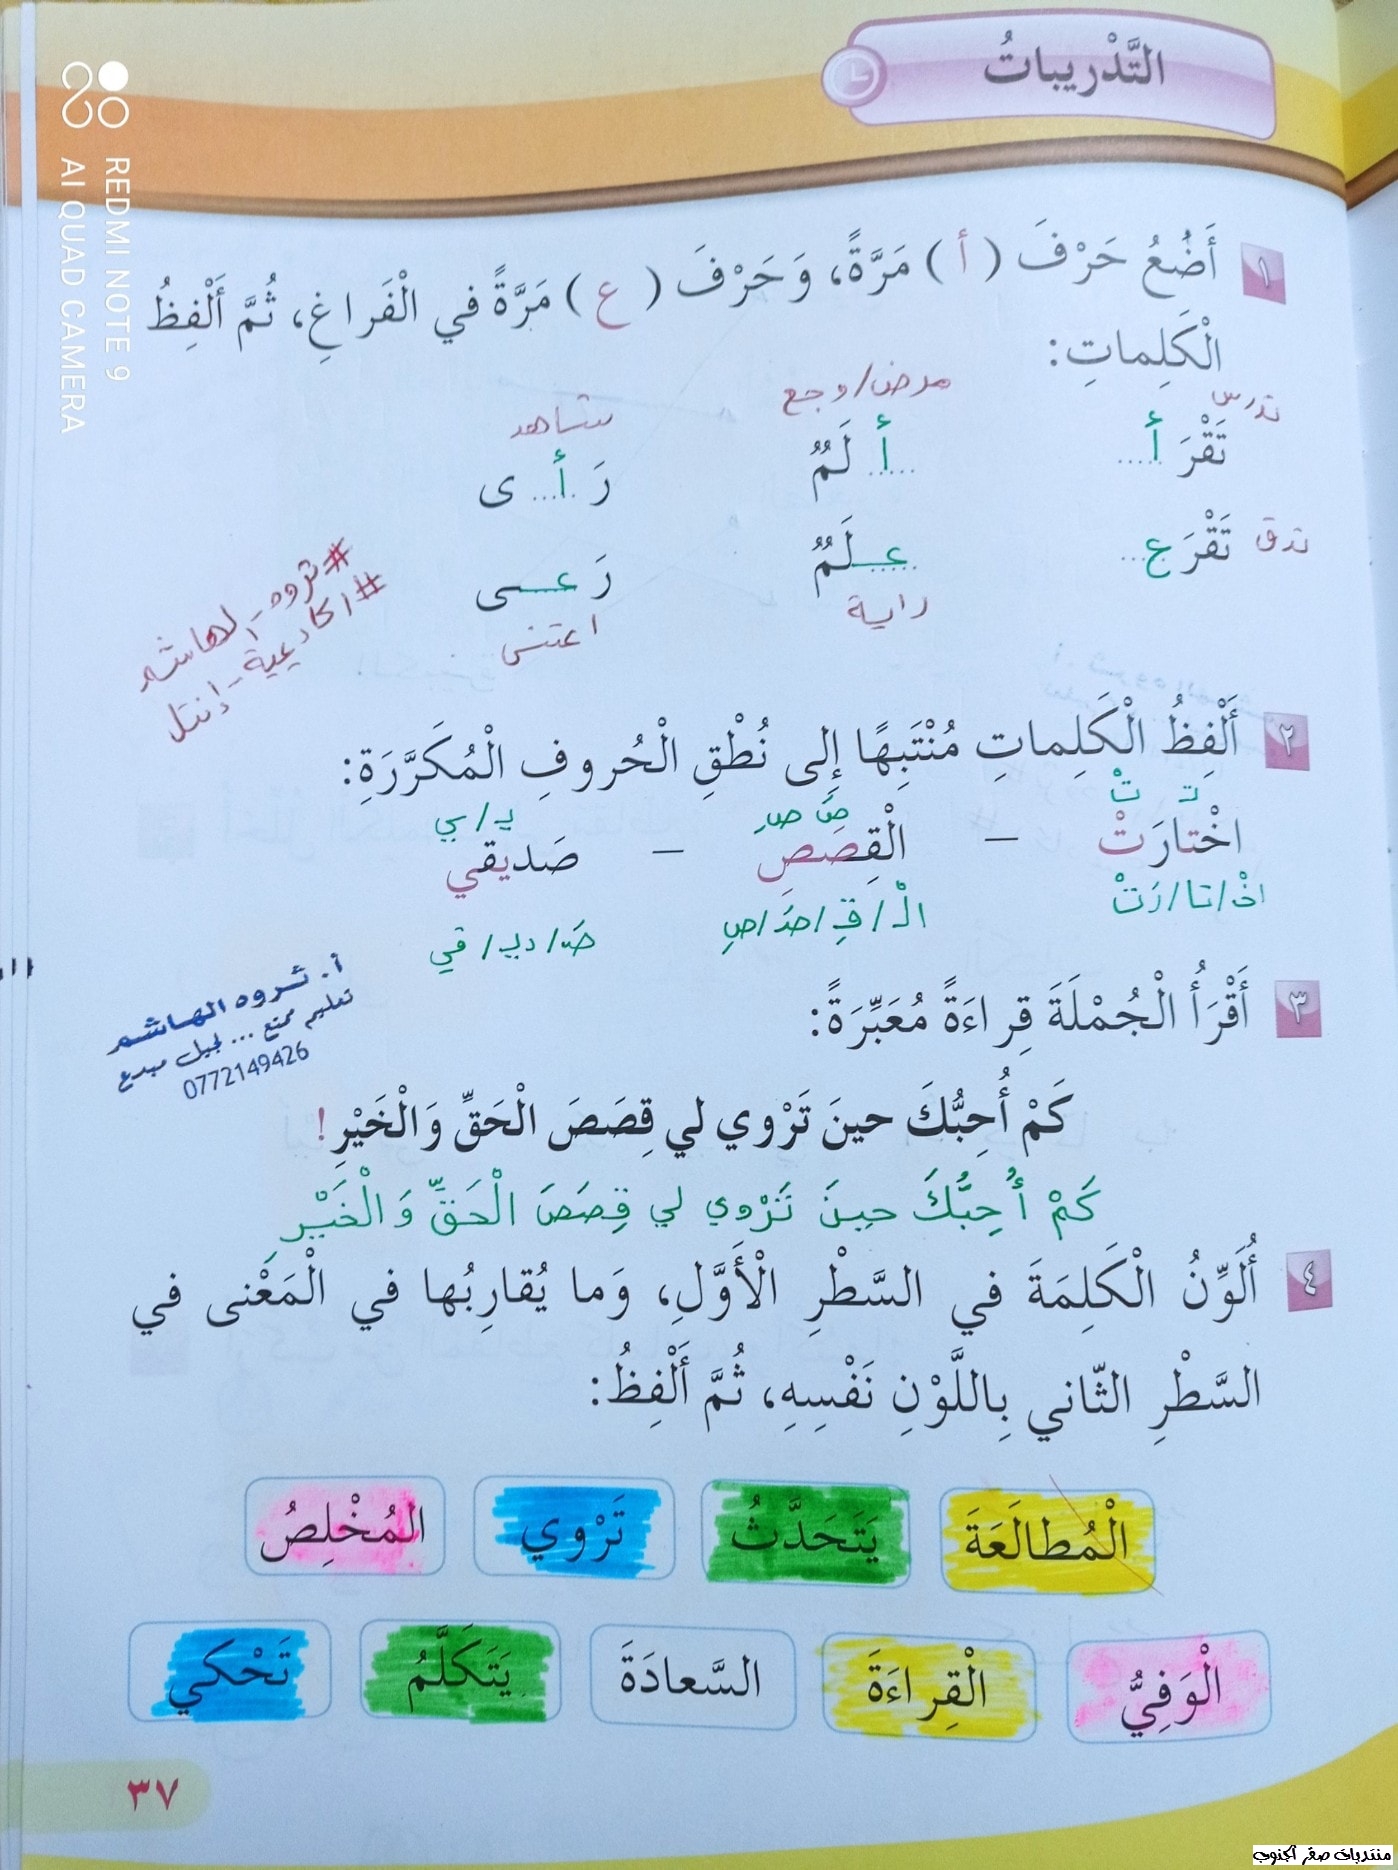 التَّدْريباتُ
REDMI NOTE 9
AI QUAD CAMERA
١ أَضَعُ حَرْفَ ( أ ) مَرَّةً، وَحَرْفَ ( ع ) مَرَّةً في الْفَراغِ، ثُمَّ أَلْفِظُ
الْكَلِماتِ:
تدرس مرض/وجع شاهد
تَقْرَ أ ..... أ لَمٌ رَ أ ى
تدق تَقْرَ ع ... عـلَمٌ رَ عـى
راية اعتنى
#ثروه_الهاشم
#اكاديمية_إنتل
٢ أَلْفِظُ الْكَلِماتِ مُنْتَبِهًا إِلى نُطْقِ الْحُروفِ الْمُكَرَّرَةِ:
تـ تْ صَ صِ يـ/ي
اخْتارَتْ – الْقِصَصِ – صَديقي
اخْ/تا/رَتْ الْـ/قِـ/صَـ/صِ صَـ/ديـ/قي
أ. ثروه الهاشم
تعليم ممتع ... لجيل مبدع
0772149426
٣ أَقْرَأُ الْجُمْلَةَ قِراءَةً مُعَبِّرَةً:
كَمْ أُحِبُّكَ حينَ تَرْوي لي قِصَصَ الْحَقِّ وَالْخَيْرِ!
كَمْ أُحِبُّكَ حينَ تَرْوي لي قِصَصَ الْحَقِّ وَالْخَيْرِ
٤ أُلَوِّنُ الْكَلِمَةَ في السَّطْرِ الْأَوَّلِ، وَما يُقارِبُها في الْمَعْنى في
السَّطْرِ الثّاني بِاللَّوْنِ نَفْسِهِ، ثُمَّ أَلْفِظُ:
الْمُطالَعَةَ يَتَحَدَّثُ تَرْوي الْمُخْلِصُ
الْوَفِيُّ الْقِراءَةَ السَّعادَةَ يَتَكَلَّمُ تَحْكي
٣٧
منتديات صقر الجنوب